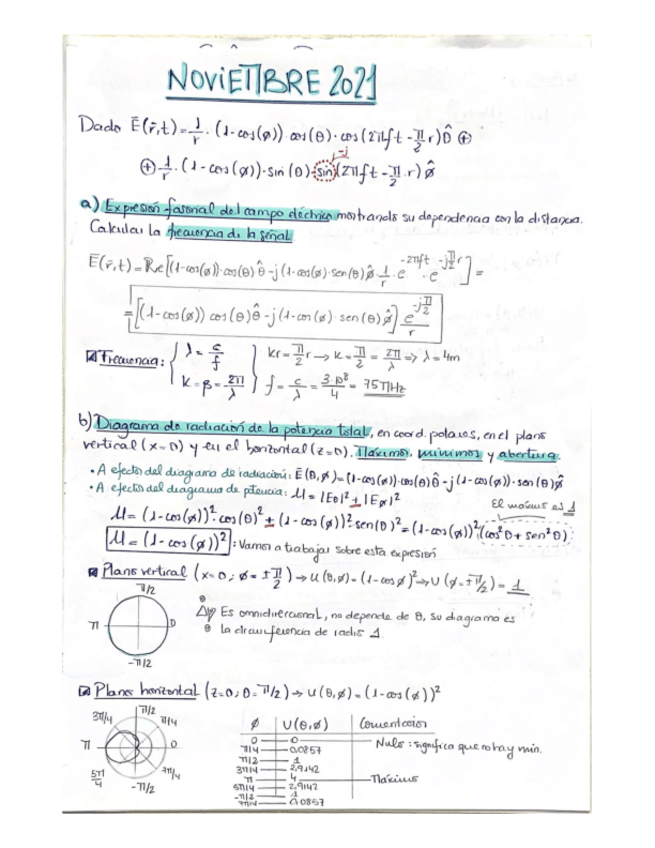 NOVIEMBRE 2021
Dado Ē(r̄,t)=1/r·(1-cos(ø))·cos(θ)·cos(2πft-π/2 r)θ̂ ⊕
⊕ 1/r·(1-cos(ø))·sin(θ)·sin(2πft-π/2·r)ø̂
-j
a) Expresión fasorial del campo eléctrico mostrando su dependencia con la distancia.
Calcular la frecuencia de la señal
Ē(r̄,t)=Re[(1-cos(ø))·cos(θ)θ̂-j(1-cos(ø)·sen(θ)ø̂·1/r·e^-2πft·e^-jπ/2 r]=
=[(1-cos(ø)) cos(θ)θ̂-j(1-cos(ø)·sen(θ)ø̂] e^-jπ/2/r
Frecuencia: { λ=c/f } kr=π/2 r → k=π/2=2π/λ ⇒ λ=4m
k=β=2π/λ f=c/λ=3·10⁸/4=75MHz
b) Diagrama de radiación de la potencia total, en coord. polares, en el plano
vertical (x=0) y en el horizontal (z=0). Máximos, mínimos y abertura.
• A efectos del diagrama de radiación: Ē(θ,ø)=(1-cos(ø))·cos(θ)θ̂-j(1-cos(ø)·sen(θ)ø̂
• A efectos del diagrama de potencia: U=|Eθ|²+|Eø|²
El máximo es 1
U=(1-cos(ø))²·cos(θ)²+(1-cos(ø))²sen(θ)²=(1-cos(ø))²(cos²θ+sen²θ)
U=(1-cos(ø))² : Vamos a trabajar sobre esta expresión
Plano vertical (x=0; ø=±π/2) → U(θ,ø)=(1-cosø)² → U(ø=±π/2)=1
π/2
π 0
-π/2
Es omnidireccional, no depende de θ, su diagrama es
la circunferencia de radio 1
Plano horizontal (z=0; θ=π/2) → U(θ,ø)=(1-cos(ø))²
3π/4 π/2 π/4
π 0
5π/4 -π/2 7π/4
ø U(θ,ø) Comentarios
0 0 Nulo: significa que no hay min.
π/4 0,0857
π/2 1
3π/4 2,9142
π 4 Máximo
5π/4 2,9142
-π/2 1
7π/4 0,0857